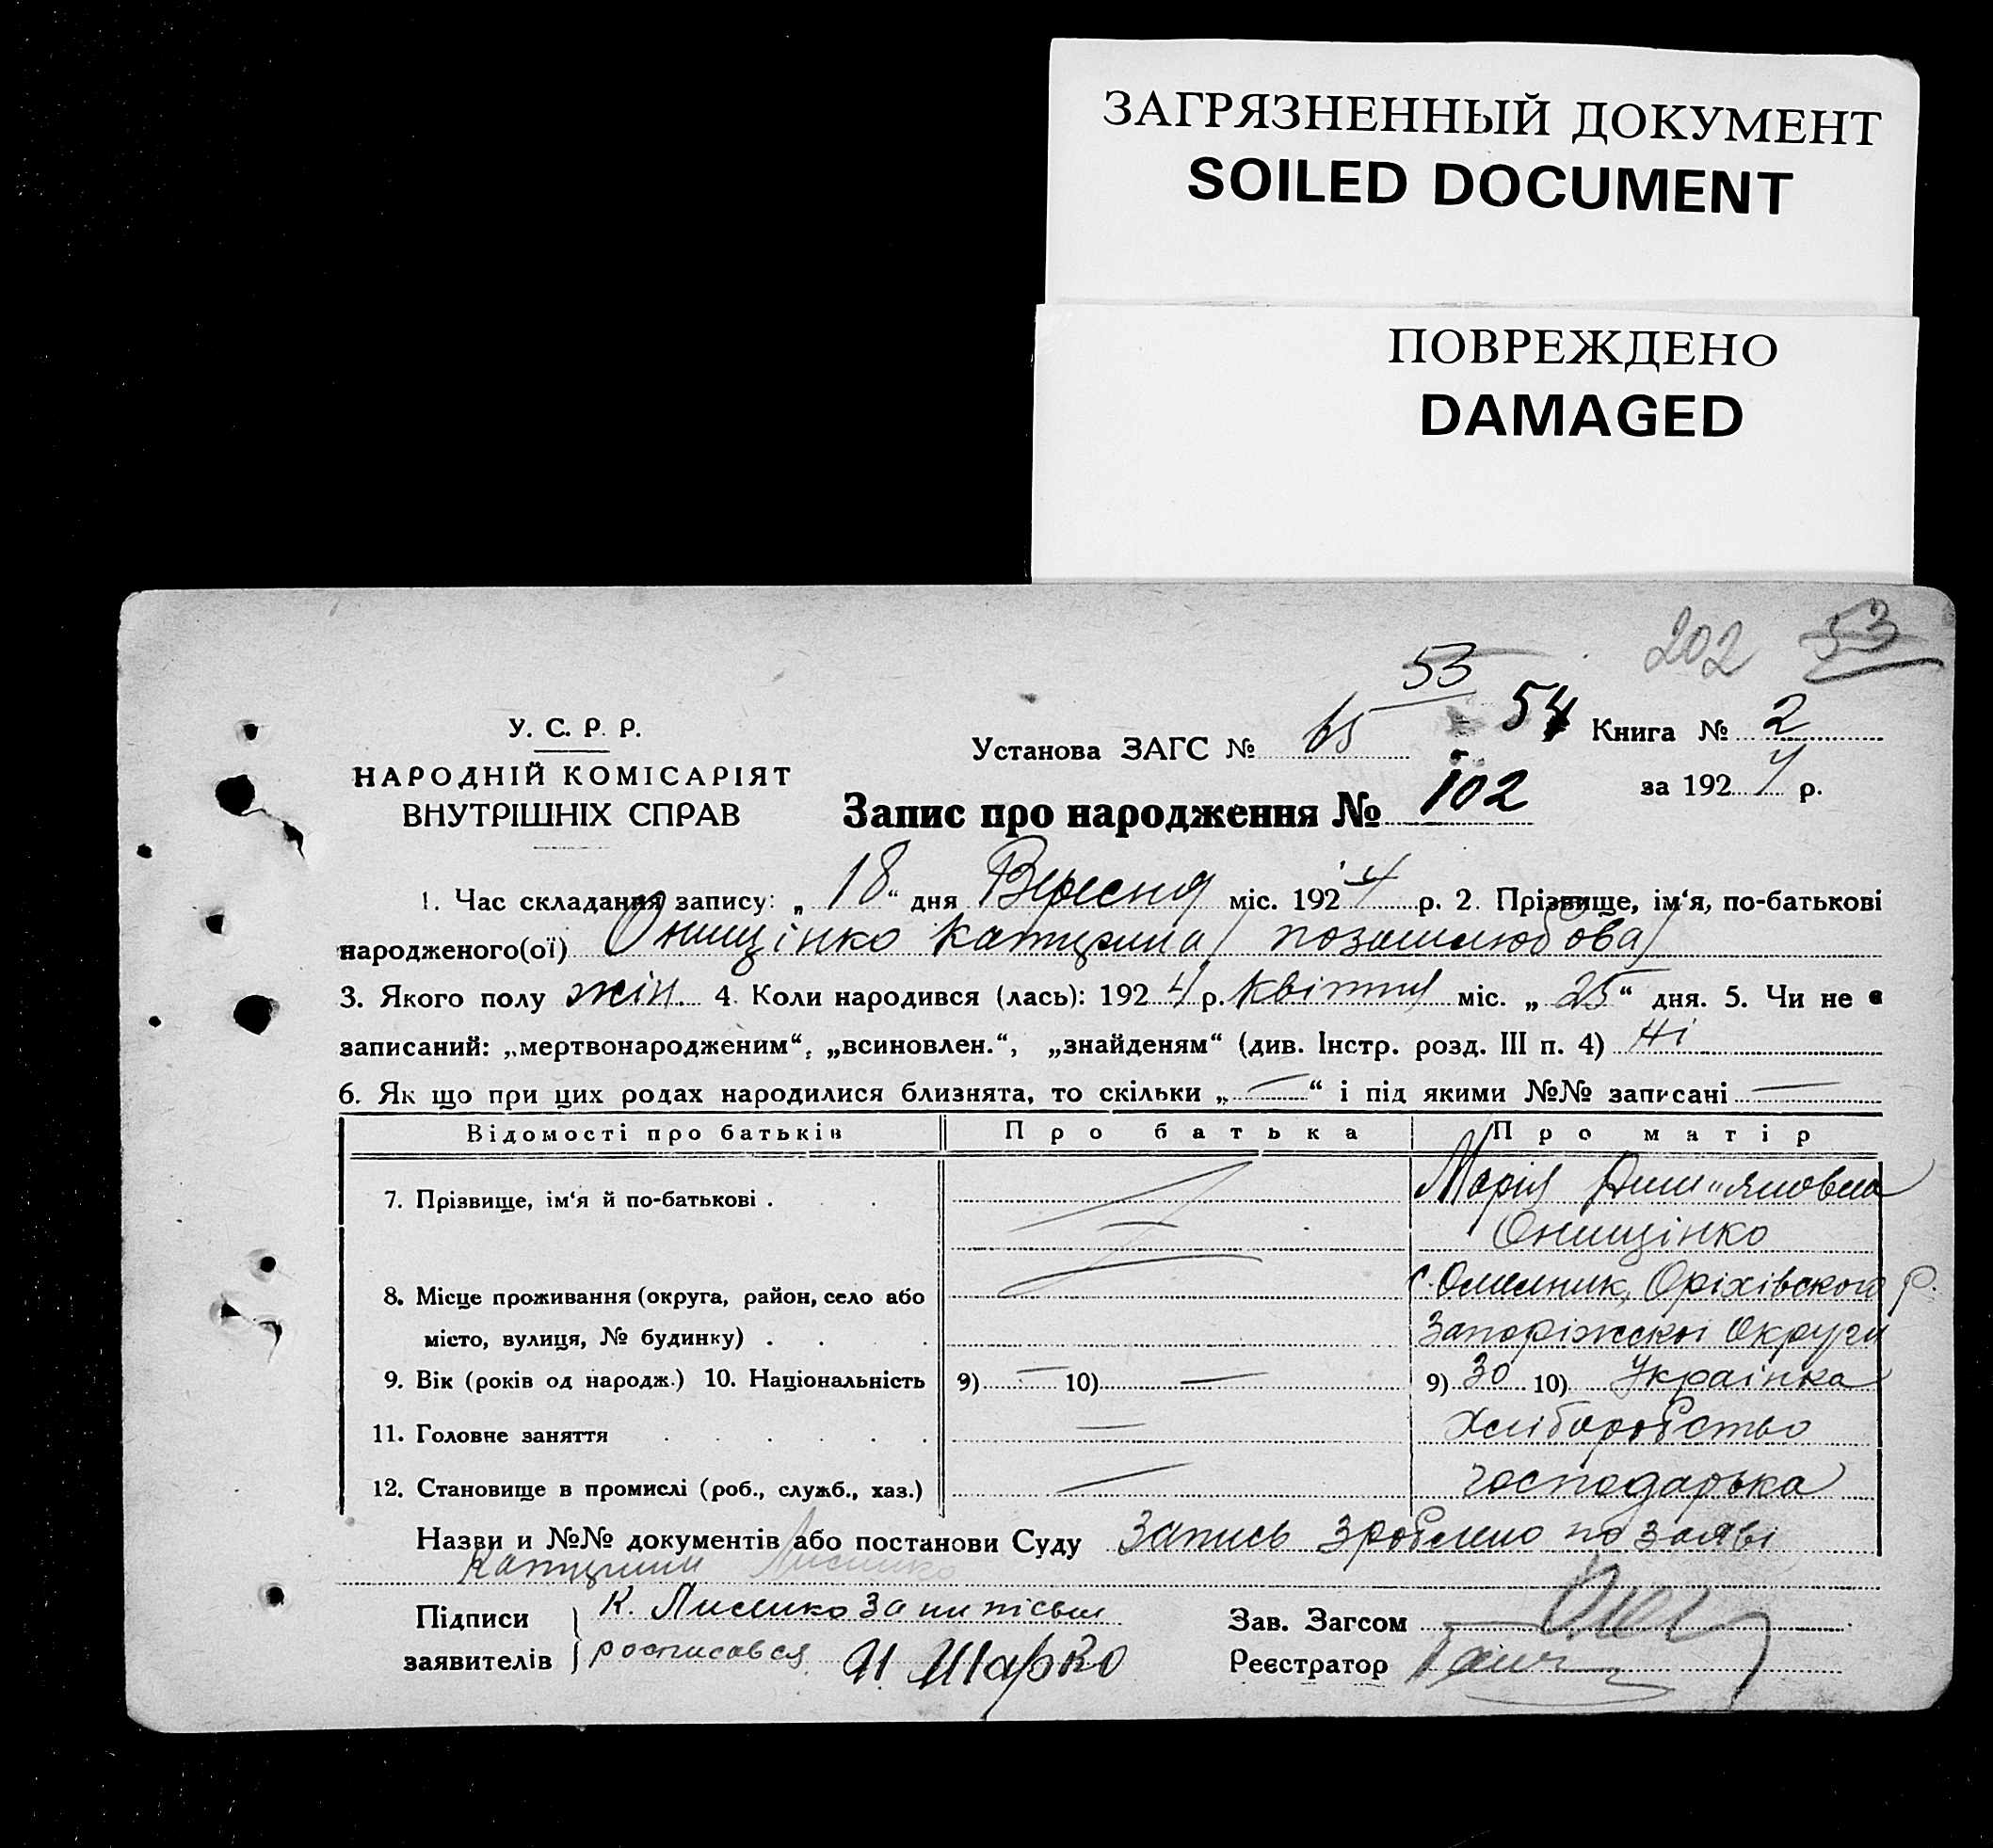 ЗАГРЯЗНЕННЫЙ ДОКУМЕНТ
SOILED DOCUMENT
ПОВРЕЖДЕНО
DAMAGED
202 53
53
У. С. Р. Р.
НАРОДНІЙ КОМІСАРІЯТ
ВНУТРІШНІХ СПРАВ
Установа ЗАГС № 65 54 Книга № 2
за 1924 р.
Запис про народження № 102
1. Час складання запису: „18“ дня Вересня міс. 1924 р. 2. Прізвище, ім‘я, по-батькові
народженого(ої) Онищінко Катерина (позашлюбова)
3. Якого полу жін. 4. Коли народився (лась): 1924 р. Квітня міс. „25“ дня. 5. Чи не є
записаний: „мертвонародженим“, „всиновлен.“, „знайденям“ (див. Інстр. розд. III п. 4) Ні
6. Як що при цих родах народилися близнята, то скільки „—“ і під якими №№ записані —
Відомості про батьків Про батька Про матір
7. Прізвище, ім‘я й по-батькові . Марія
Онищінко
8. Місце проживання (округа, район, село або с. Омельник, Оріхівского р.
місто, вулиця, № будинку) . Запоріжскої Округи
9. Вік (років од народж.) 10. Національність 9) — 10) — 9) 30 10) Українка
11. Головне заняття — Хліборобство
12. Становище в промислі (роб., служб., хаз.) — господарька
Назви и №№ документів або постанови Суду Запись зроблено по заяві
Катерини Лисенко
Підписи К. Лисенко за неписьм
заявителів росписався И. Шарко
Зав. Загсом
Реєстратор